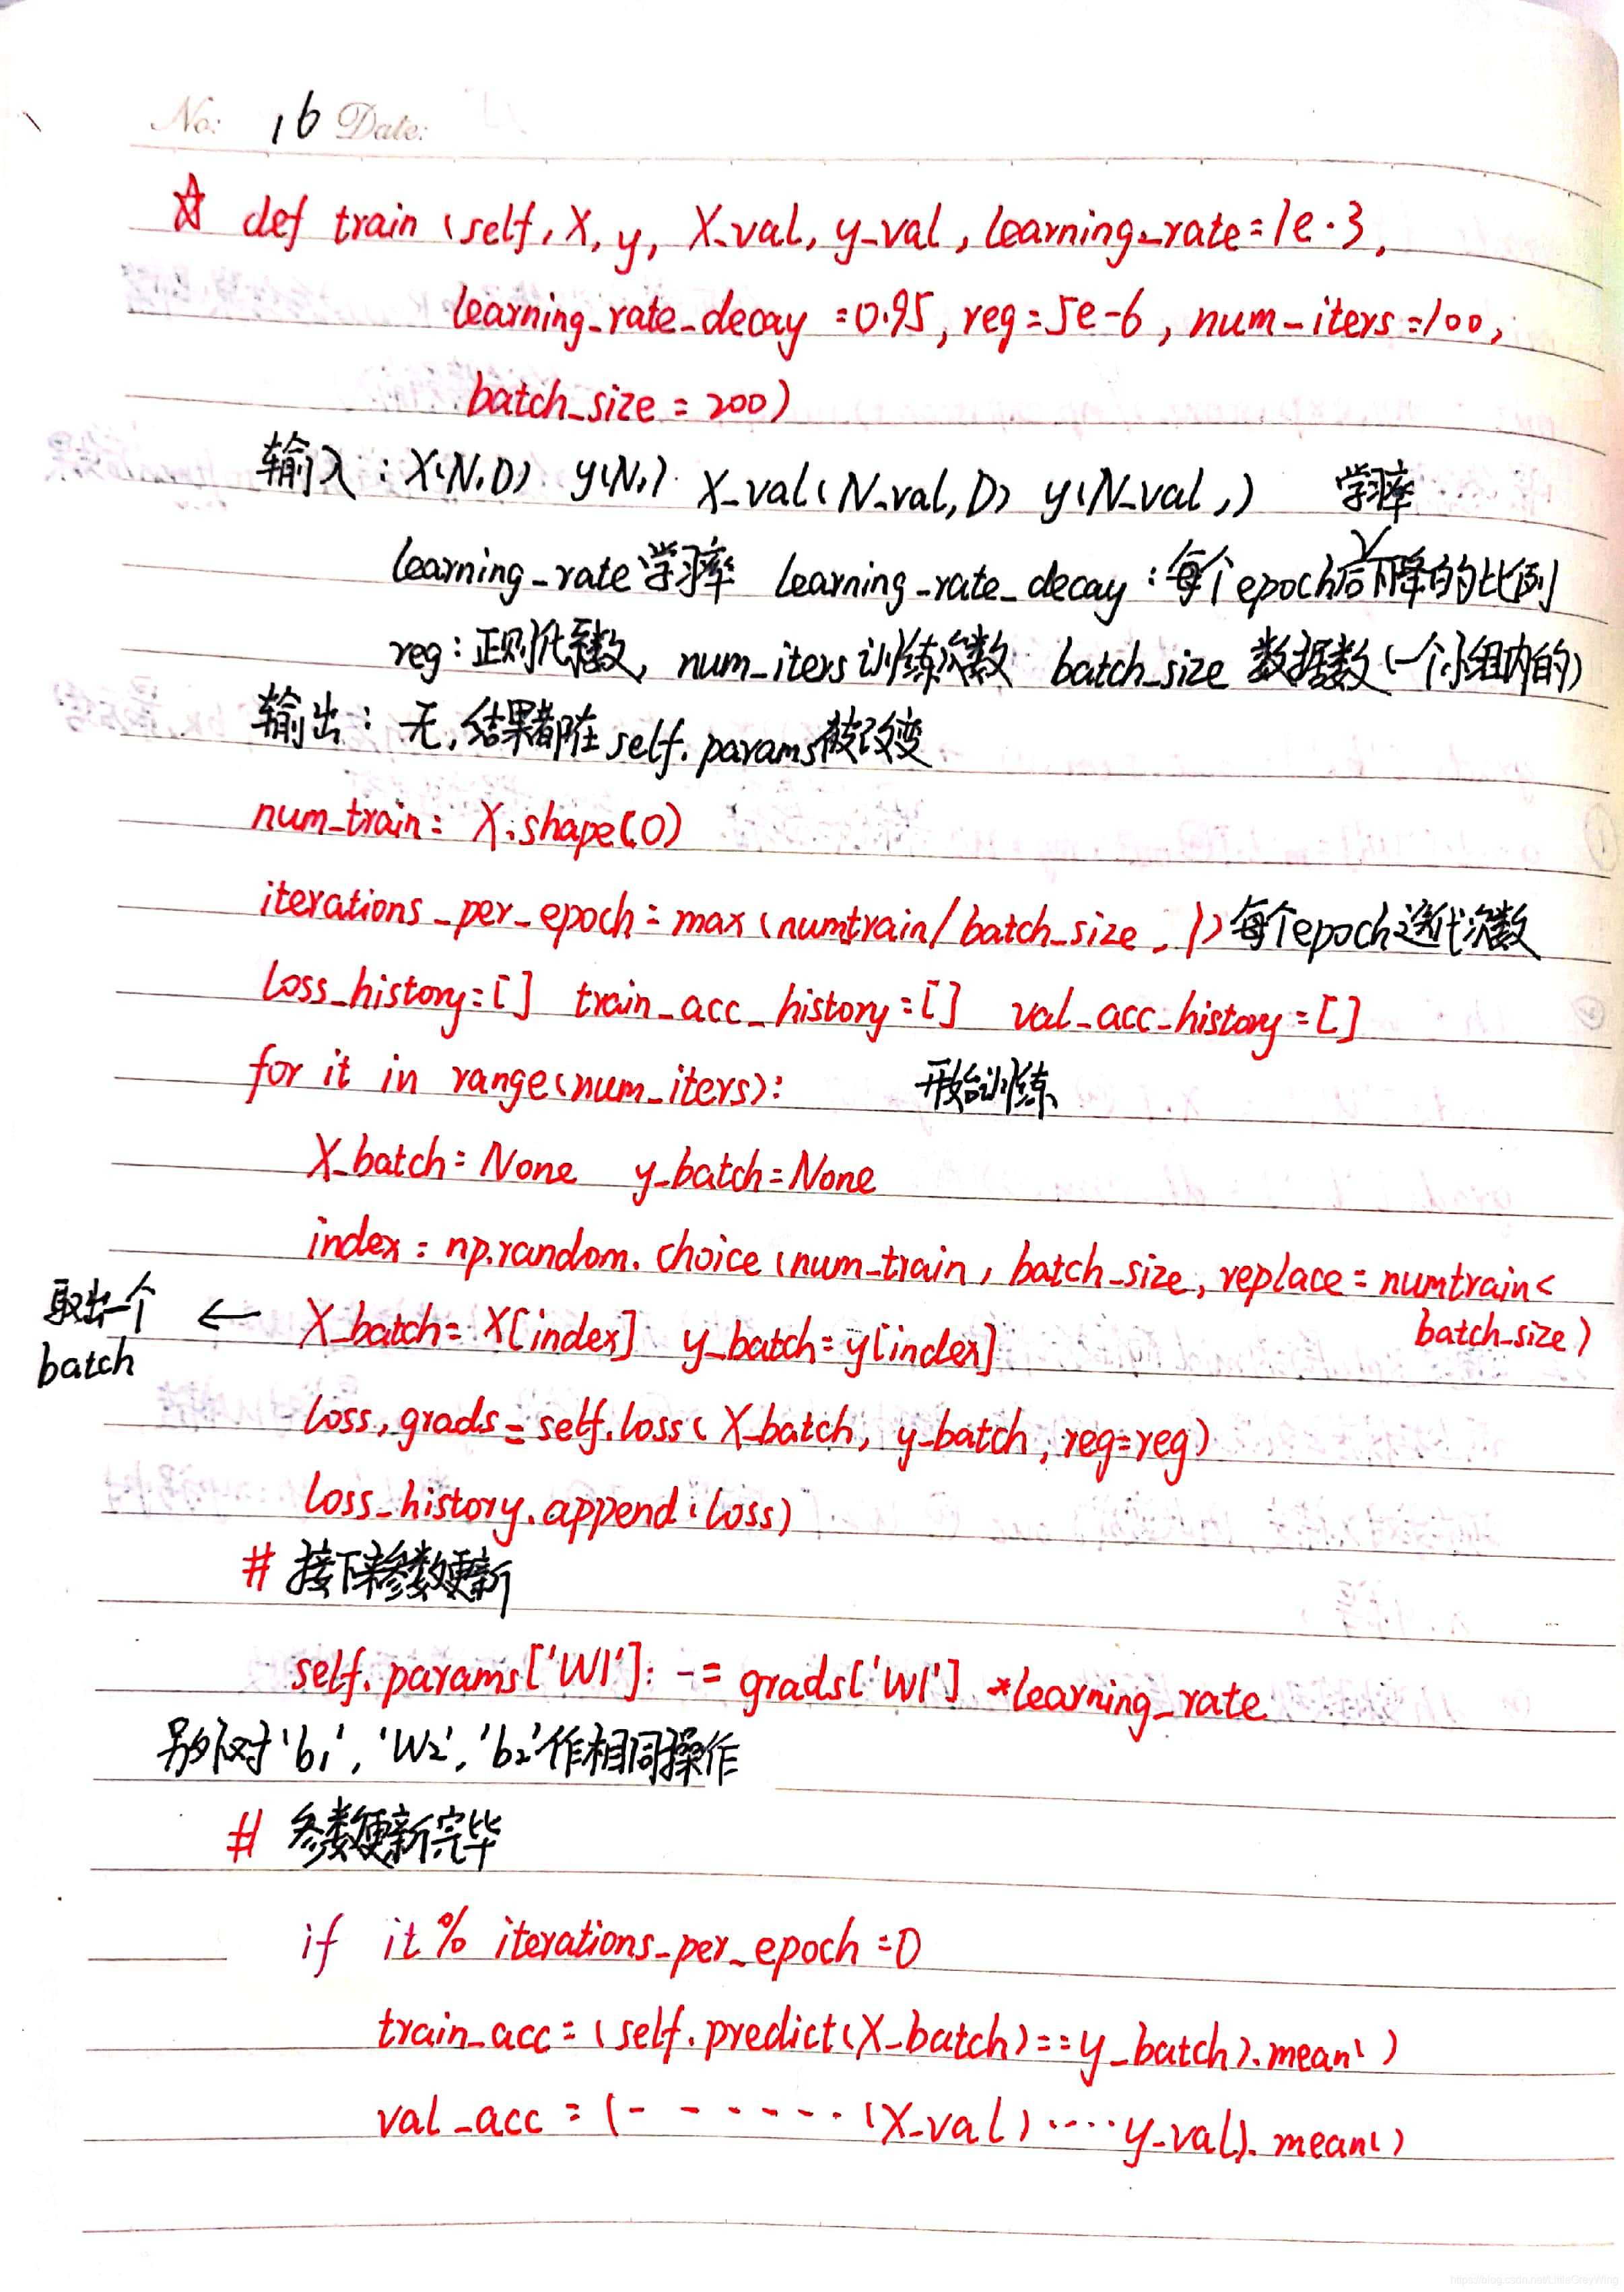 No: 16 Date:
☆ def train (self, X, y, X_val, y_val, learning_rate=1e-3,
learning_rate_decay=0.95, reg=5e-6, num_iters=100,
batch_size=200)
输入: X(N,D) y(N,) X_val(N_val,D) y(N_val,) 学习率
learning_rate 学习率 learning_rate_decay: 每个epoch后下降的比例
reg: 正则化系数, num_iters 训练次数 batch_size 数据数(一个小组内的)
输出: 无, 结果都在 self.params被改变
num_train = X.shape(0)
iterations_per_epoch = max(numtrain/batch_size, 1) 每个epoch迭代次数
loss_history=[] train_acc_history=[] val_acc_history=[]
for it in range(num_iters): 开始训练
X_batch=None y_batch=None
index = np.random.choice(num_train, batch_size, replace=numtrain<
batch_size)
取出一个 ← X_batch= X[index] y_batch=y[index]
batch
loss, grads = self.loss(X_batch, y_batch, reg=reg)
loss_history.append(loss)
# 接下来参数更新
self.params['W1']: -= grads['W1'] *learning_rate
另外对'b1', 'W2', 'b2'作相同操作
# 参数更新完毕
if it % iterations_per_epoch =0
train_acc=(self.predict(X_batch)==y_batch).mean()
val_acc = (- - - - - - - (X_val) ···· y_val).mean()
https://blog.csdn.net/LittleGreyWing